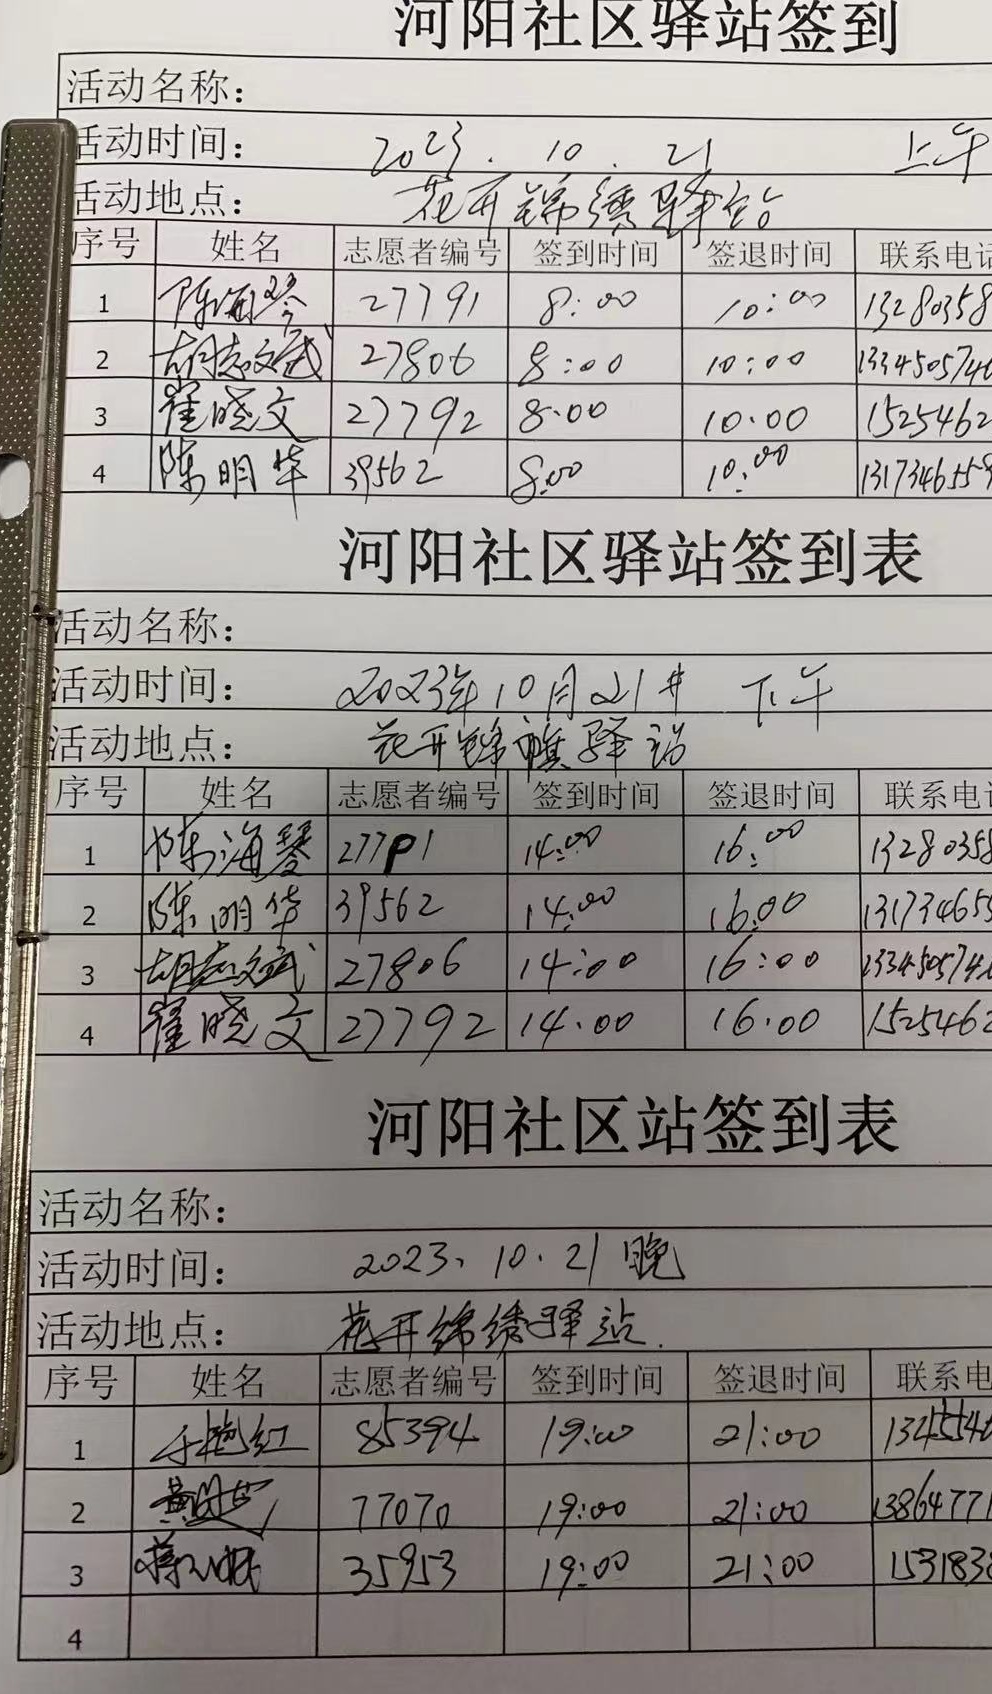 河阳社区驿站签到
活动名称：
活动时间： 2023.10.21 上午
活动地点： 花开锦绣驿站
序号 姓名 志愿者编号 签到时间 签退时间 联系电话
1 陈海琴 27791 8:00 10:00 13280358
2 胡志斌 27806 8:00 10:00 1334505746
3 崔晓文 27792 8:00 10:00 1525462
4 陈明华 39562 8:00 10:00 1317346559
河阳社区驿站签到表
活动名称：
活动时间： 2023年10月21日 下午
活动地点： 花开锦绣驿站
序号 姓名 志愿者编号 签到时间 签退时间 联系电话
1 陈海琴 27791 14:00 16:00 13280358
2 陈明华 39562 14:00 16:00 131734655
3 胡志斌 27806 14:00 16:00 133450574
4 崔晓文 27792 14:00 16:00 1525462
河阳社区站签到表
活动名称：
活动时间： 2023、10.21晚
活动地点： 花开绵绣驿站.
序号 姓名 志愿者编号 签到时间 签退时间 联系电
1 85394 19:00 21:00
2 77070 19:00 21:00 1386477
3 35953 19:00 21:00 153183
4